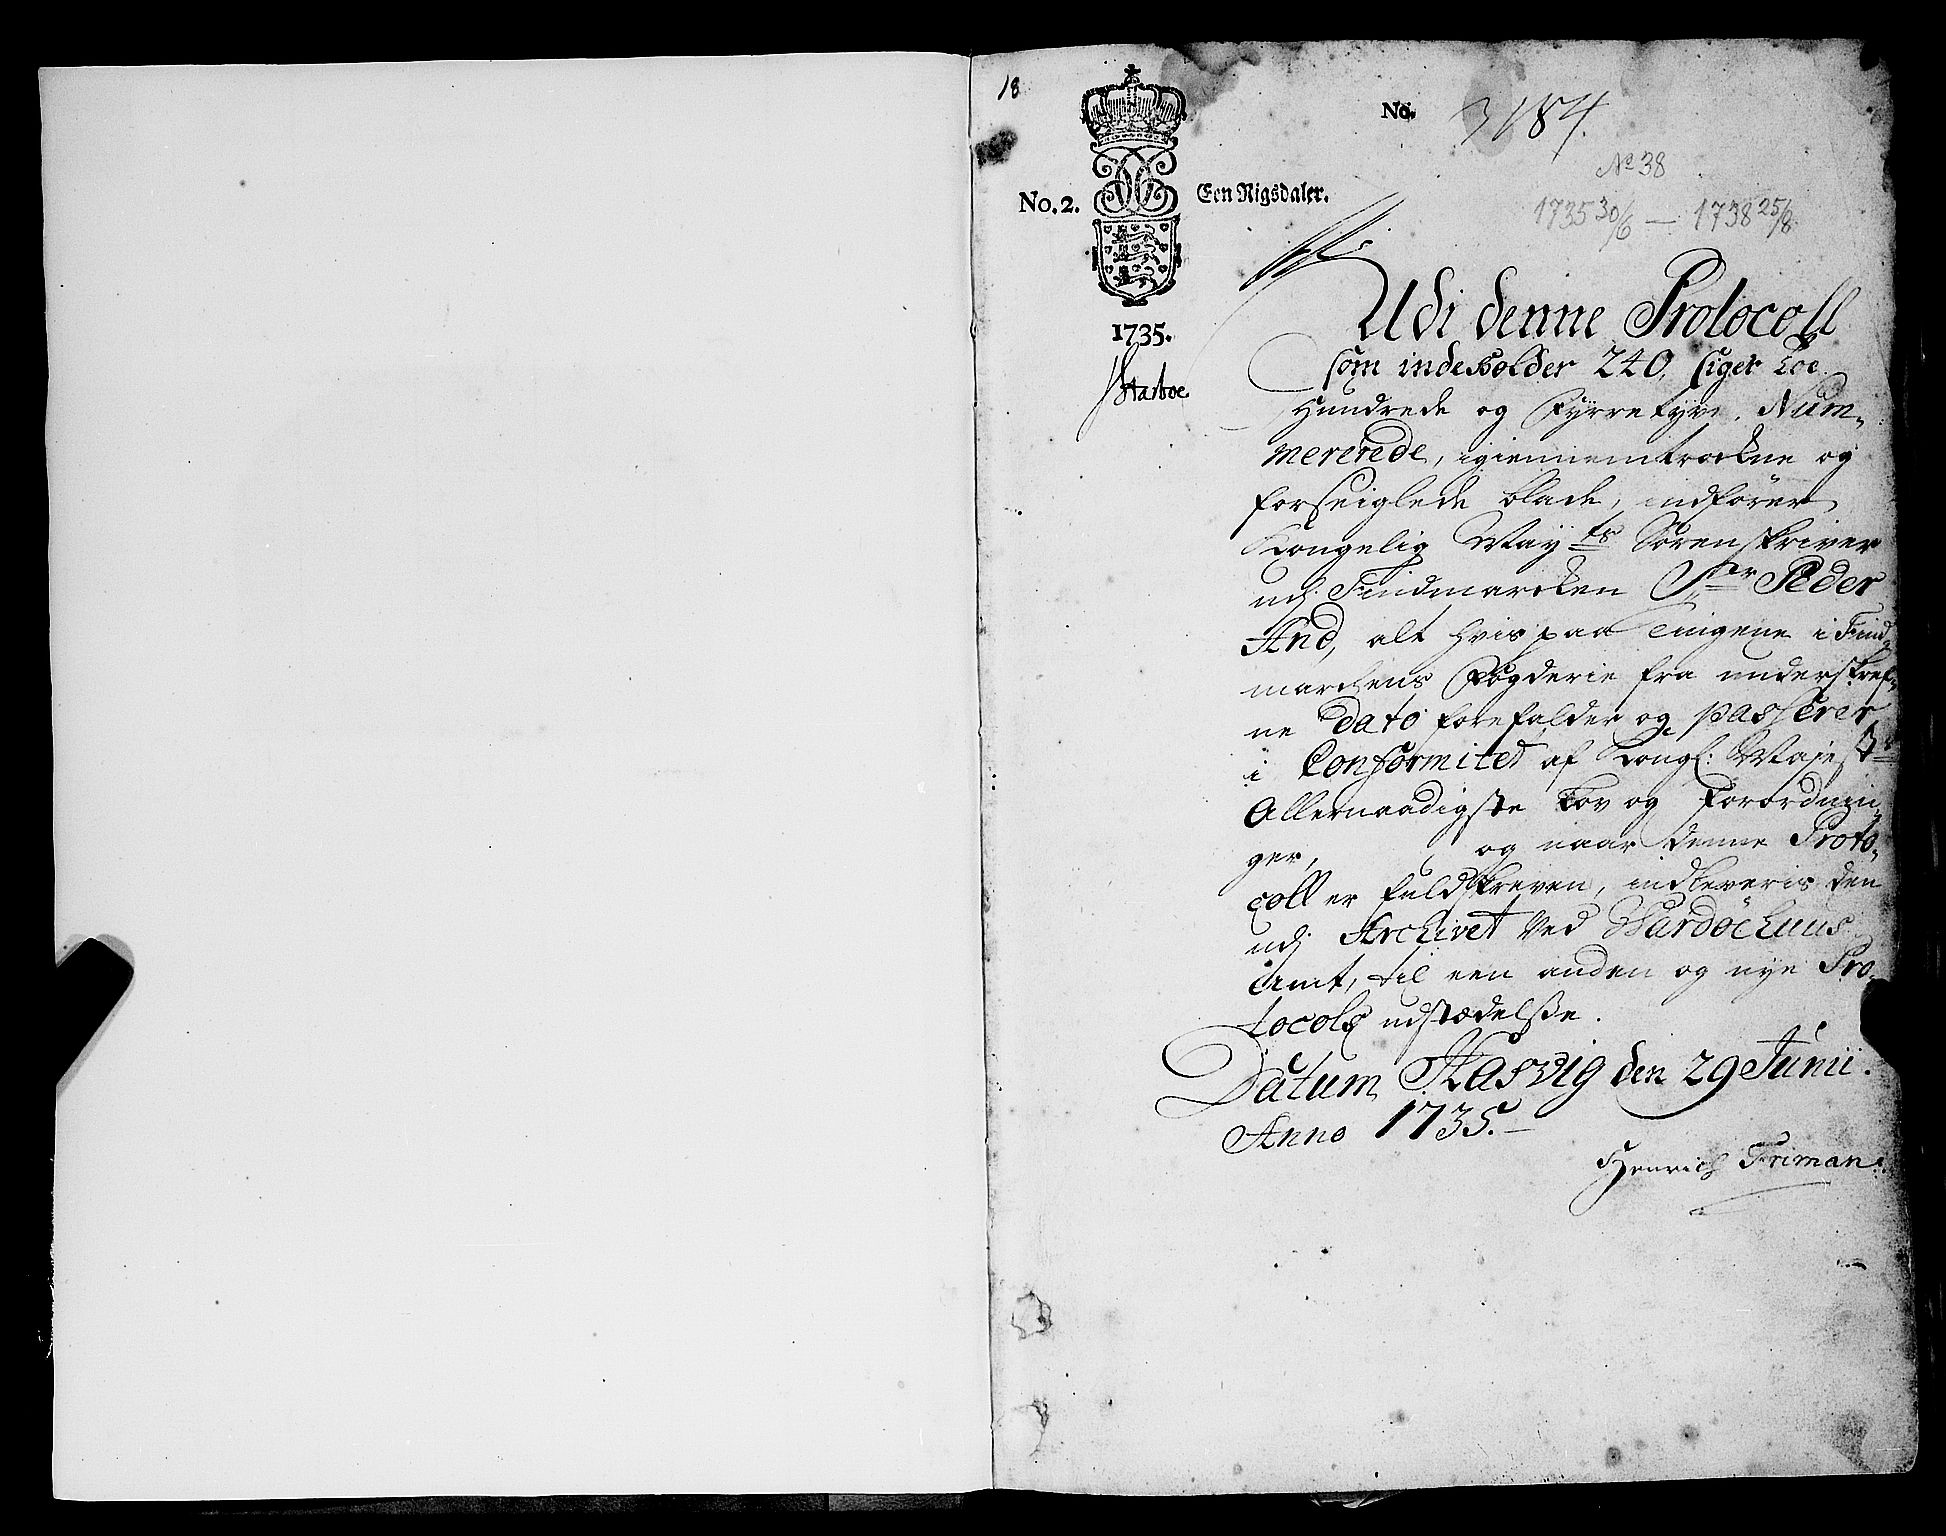 18
No. 3184.
No 38
No. 2.
Een Rigsdaler.
1735 30/6 — 1738 25/8
1735.
Udi denne Protocoll
som indeholder 240, siger Toe
Hundrede og Fyrretyve, Num-
mererede, igiennemtrockne og
forseiglede blade, indfører
Kongelig May ts Sorenskriver
udj Findmarcken Sr Peder
And, alt hvis paa Tingene i Find-
marchens Fogderie fra underskref-
ne Dato forefalder og passerer
i Conformitet af Kongl: Majest ts
Allernaadigste Lov og Forordnin-
ger, og naar denne Proto-
coll er fuldskreven, indleveris den
udj Archivet ved Wardøehuus
Amt, til een anden og nye Pro-
tocols udstædelsse.
Datum Hasvig den 29 Junii.
Anno 1735.
Henrich Friman